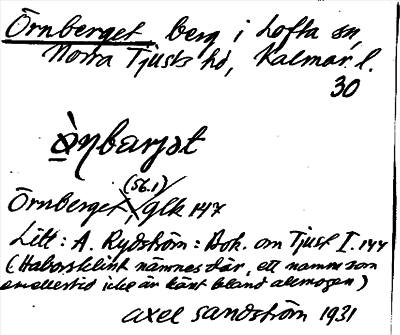 Örnberget, berg i Lofta sn,
Norra Tjusts hd, Kalmar l.
30
(56.1)
Örnberget glk 147
Litt: A. Rydström: Bok. om Tjust I. 144
(Haborsklint nämnes där, ett namn som
emellertid icke är känt bland allmogen)
Axel Sandström 1931